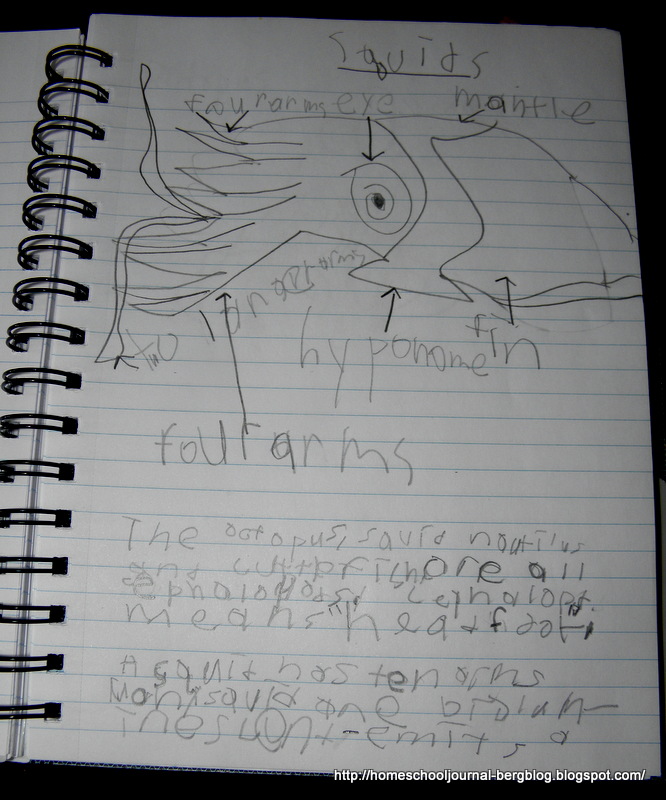 Squids
four arms eye mantle
two longer arms
hyponome fin
four arms
The octopus, squid nautilus
and cuttlefish are all
means "headfoot".
A squid has ten arms
Many squid are biolum-
inescent-emits a
http://homeschooljournal-bergblog.blogspot.com/